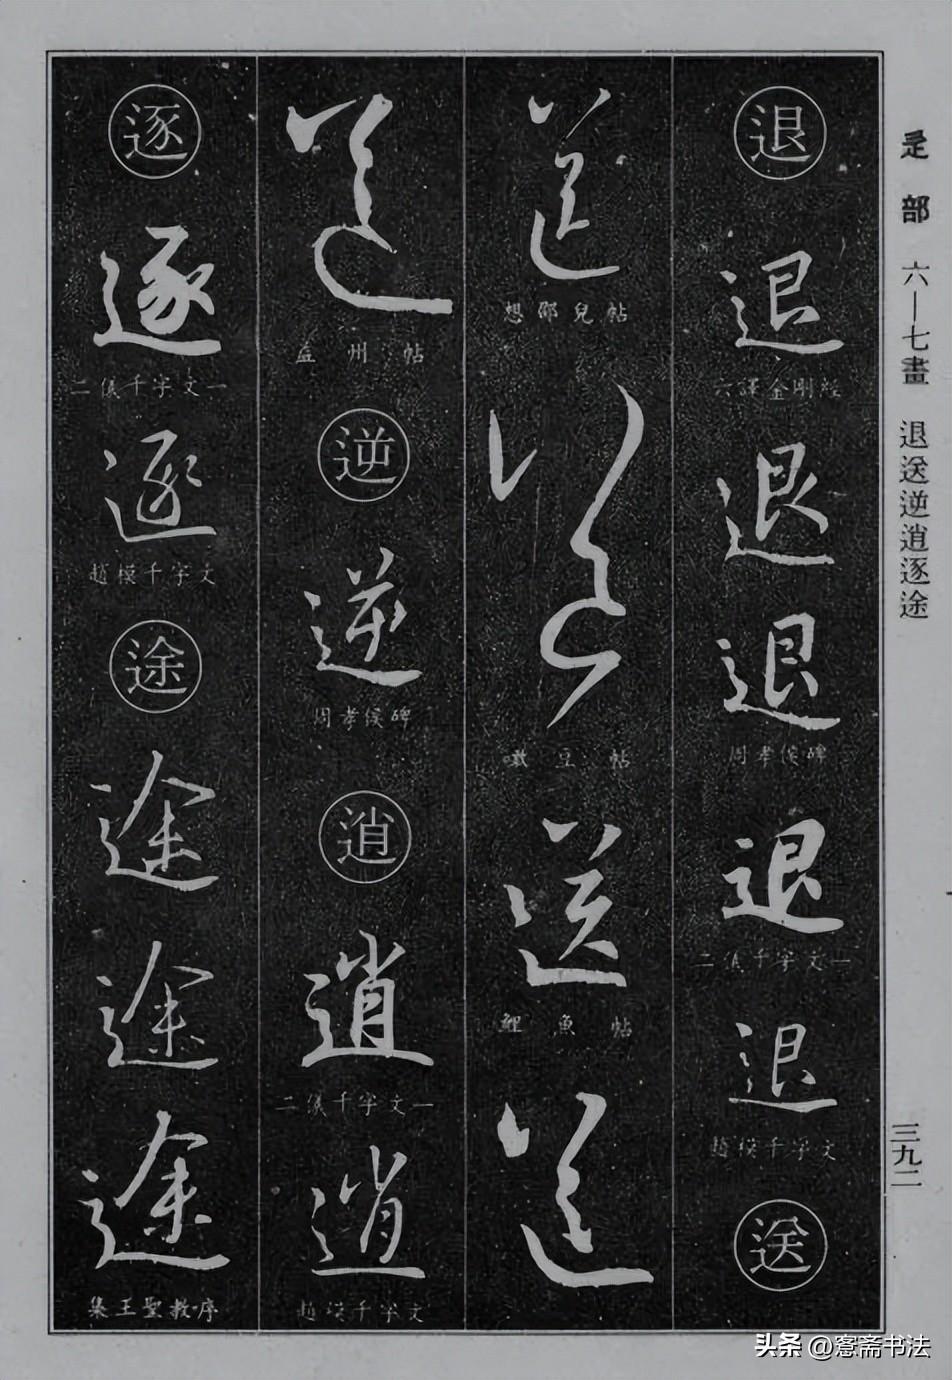 辵部 六—七畫 退送逆逍逐途
三九二
退
退
六譯金剛經
退
退
周孝侯碑
退
二儀千字文一
退
趙模千字文
送
送
想鄒兒帖
送
噉豆帖
送
鯉魚帖
送
益州帖
送
逆
逆
周孝侯碑
逍
逍
二儀千字文一
逍
趙模千字文
逐
逐
二儀千字文一
逐
趙模千字文
途
途
途
途
集王聖教序
头条 @窓斋书法